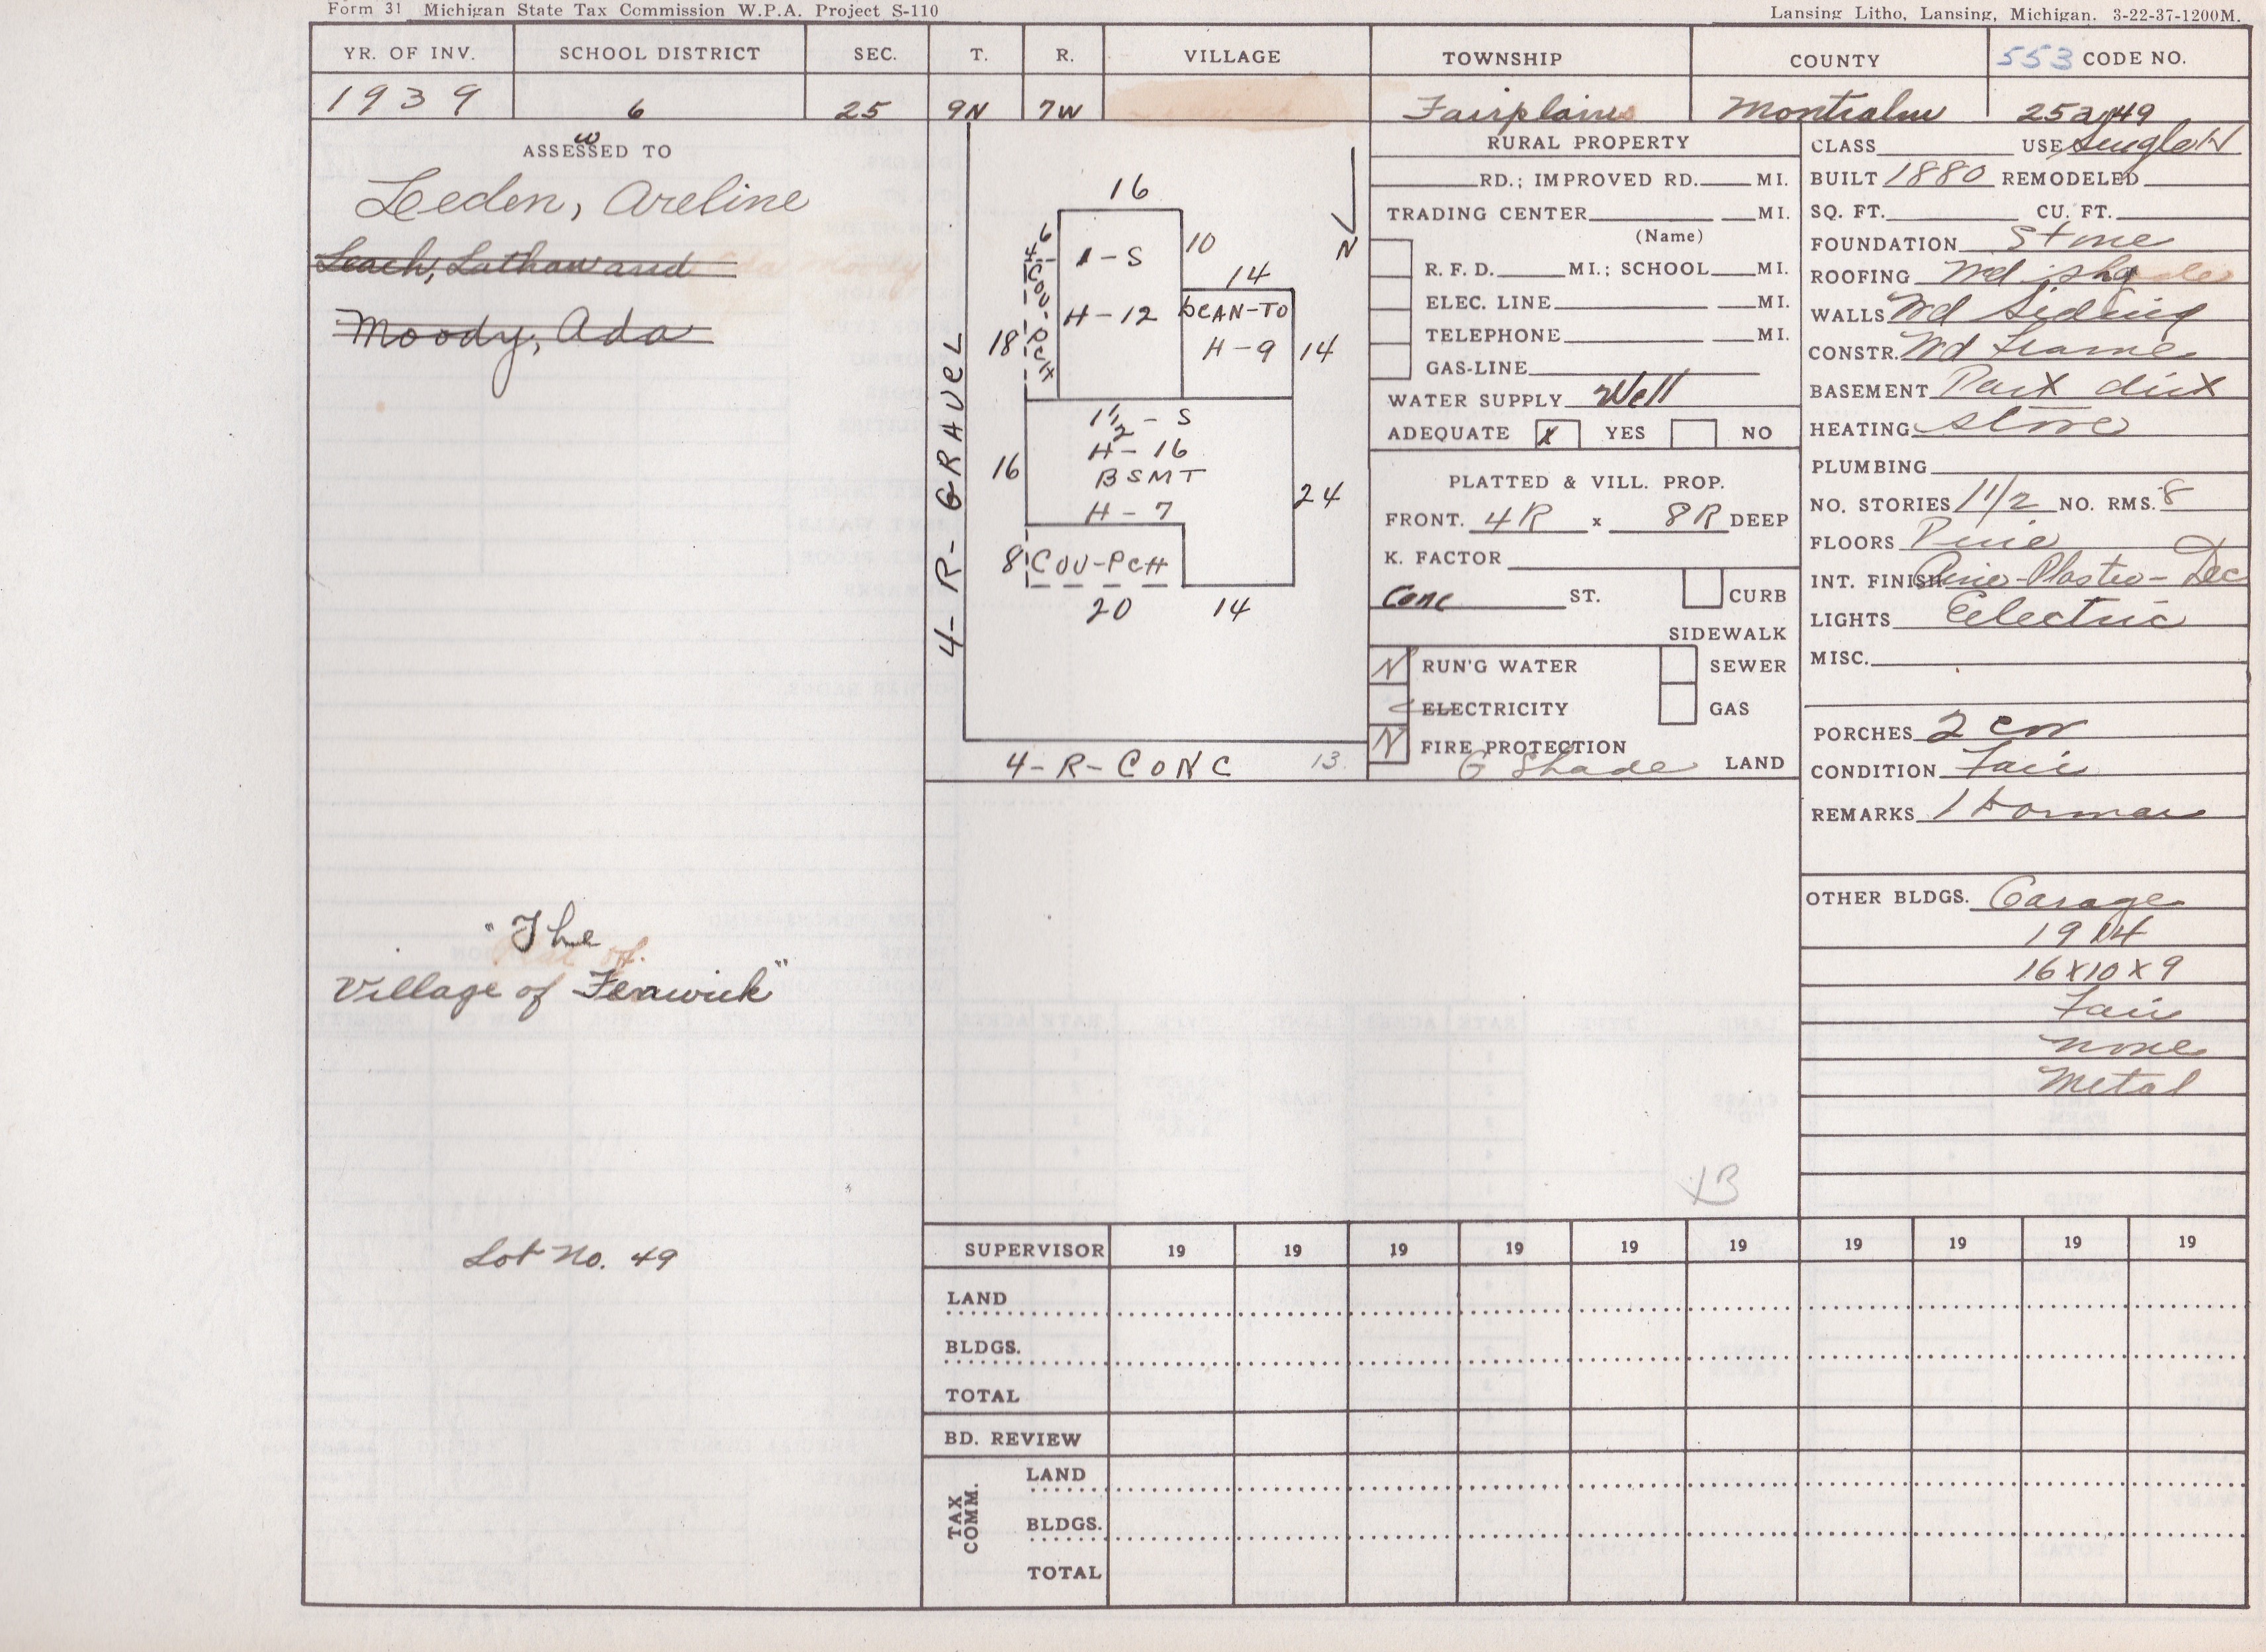 Form 31 Michigan State Tax Commission W.P.A. Project S-110
Lansing Litho, Lansing, Michigan. 3-22-37-1200M.
YR. OF INV. SCHOOL DISTRICT SEC. T. R. VILLAGE TOWNSHIP COUNTY 553 CODE NO.
1939 6 25 9N 7W Fairplains Montcalm 252-49
ASSESSED TO
W
Leeden, Areline
Leach, Lathan and
Ada Moody
Moody, Ada
"The
Plat of
Village of Fenwick"
Lot No. 49
4-R-GRAVEL
16
6
4
1-S
10
14
N
COV-PCH
H-12
LEAN-TO
18
H-9
14
1½-S
16
H-16
BSMT
24
H-7
8
COV-PCH
20
14
4-R-CONC 13
RURAL PROPERTY
RD.; IMPROVED RD. MI.
TRADING CENTER MI.
(Name)
R. F. D. MI.; SCHOOL MI.
ELEC. LINE MI.
TELEPHONE MI.
GAS-LINE
WATER SUPPLY Well
ADEQUATE X YES NO
PLATTED & VILL. PROP.
FRONT. 4R x 8R DEEP
K. FACTOR
Conc ST. CURB
SIDEWALK
N RUN'G WATER SEWER
ELECTRICITY GAS
N FIRE PROTECTION
G Shade LAND
CLASS USE Single H
BUILT 1880 REMODELED
SQ. FT. CU. FT.
FOUNDATION Stone
ROOFING Wd shg
WALLS Wd Siding
CONSTR. Wd Frame
BASEMENT Part dirt
HEATING stove
PLUMBING
NO. STORIES 1 1/2 NO. RMS. 8
FLOORS Pine
INT. FINISH Pine-Plaster-Dec
LIGHTS Electric
MISC.
PORCHES 2 cov
CONDITION Fair
REMARKS 1 Dormer
OTHER BLDGS. Garage
1914
16X10X9
Fair
none
Metal
XB
SUPERVISOR 19 19 19 19 19 19 19 19 19 19
LAND
BLDGS.
TOTAL
BD. REVIEW
TAX COMM.
LAND
BLDGS.
TOTAL